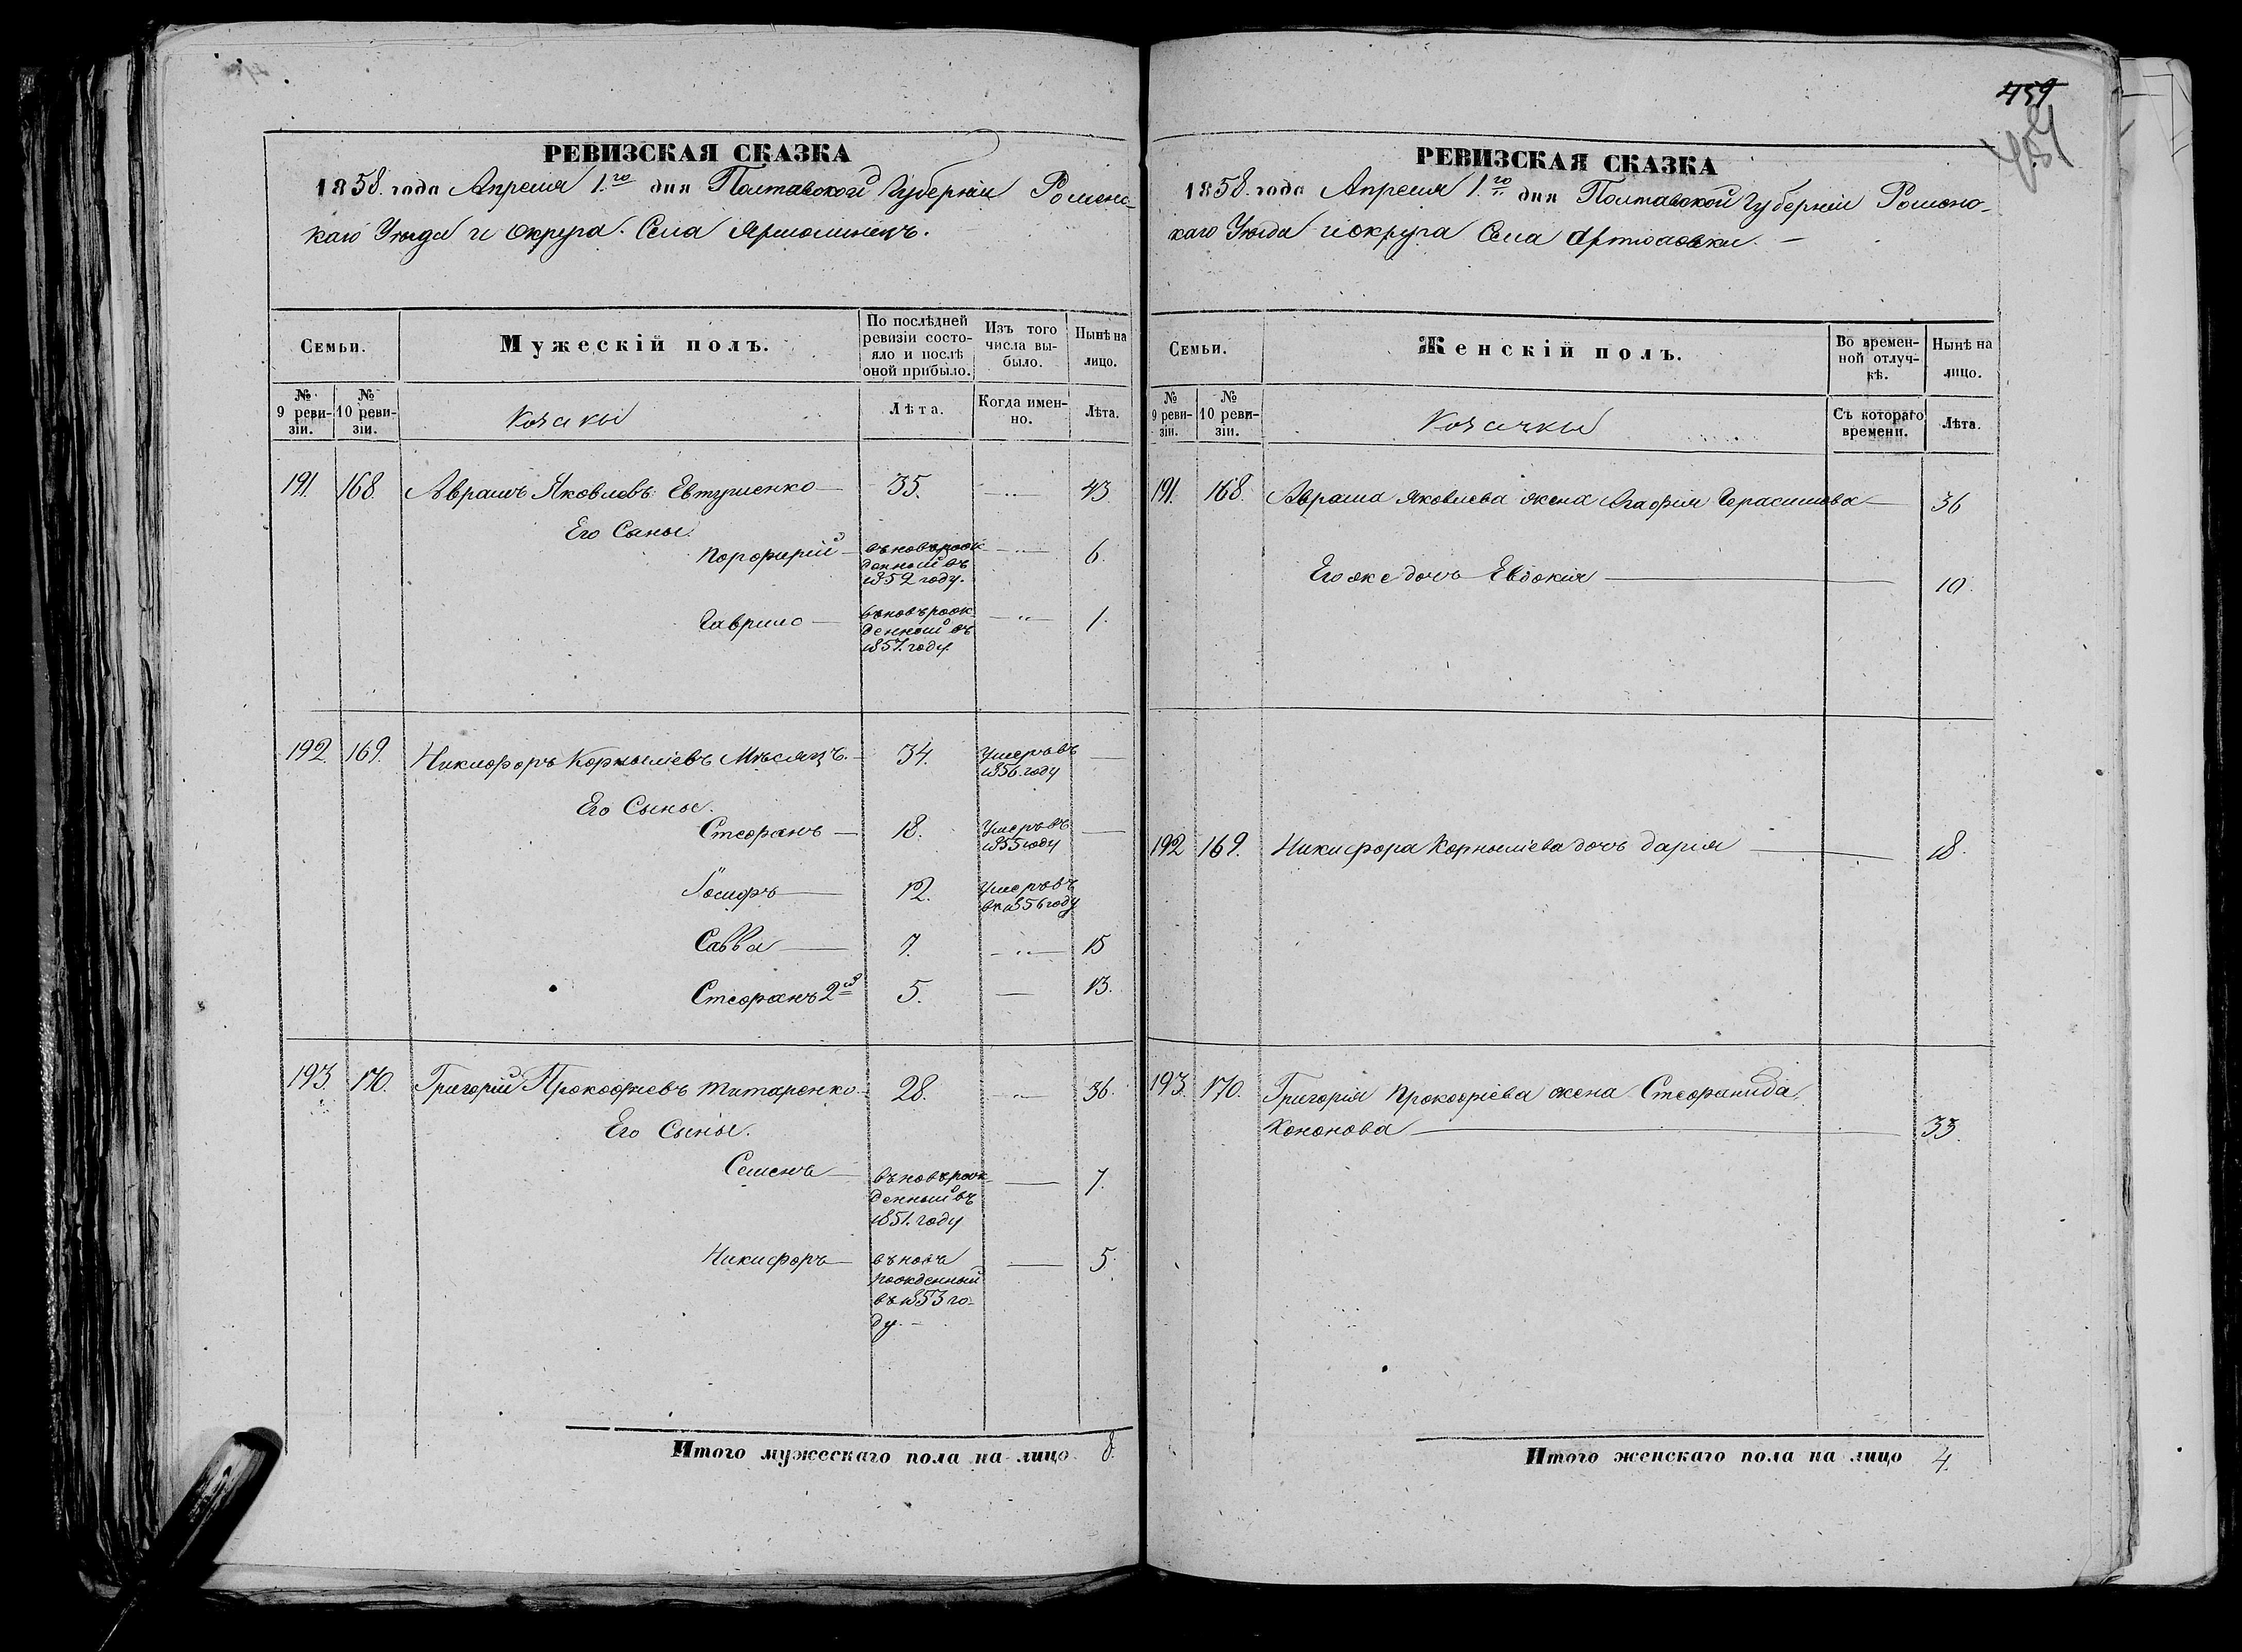 РЕВИЗСКАЯ СКАЗКА
1858. года Апреля 1.го дня Полтавской Губерніи Роменс-
каго Уѣзда и округа. Села Ярмолинецъ.
Семьи.
Мужескій полъ.
По послѣдней ревизіи состояло и послѣ оной прибыло.
Изъ того числа выбыло.
Нынѣ на лицо.
№ 9 ревизіи.
№ 10 ревизіи.
Козаки
Лѣта.
Когда именно.
Лѣта.
191. 168. Аврамъ Яковлевъ Евтушенко 35. — „ — 43
Его Сыны.
Порфирій въновьрож
денный въ
1852 году. — „ — 6.
Гаврило въновьрож
денный въ
1857. году. — „ — 1.
192. 169. Никифоръ Корнылієвъ Мѣсяцъ. 34. Умеръ въ
1856. году —
Его Сыны.
Стефанъ — 18. Умеръ въ
1855 году —
Іосифъ — 12. Умеръ въ
въ 1856 году
Савва — 7. — „ — 15
Стефанъ 2й 5. — 13.
193. 170. Григорій Прокофіевъ Титаренко 28. — „ — 36.
Его Сыны.
Семенъ — въновьрож
денный въ
1851. году — 7.
Никифоръ — вьновь
рожденный
въ 1853 го-
ду. — 5.
Итого мужескаго пола на лицо 8.
459
РЕВИЗСКАЯ СКАЗКА
1858. года Апреля 1.го дня Полтавской Губерніи Роменс-
каго Уѣзда и округа Села Артюховки. —
Семьи.
Женскій полъ.
Во временной отлучкѣ.
Нынѣ на лицо.
№ 9 ревизіи.
№ 10 ревизіи.
Козачки
Съ котораго времени.
Лѣта.
191. 168. Аврама Яковлева жена Агафія Герасимова — 36
Его же дочь Евдокія — 10.
192 169. Никифора Корныліева дочь Дарія — 18.
193. 170. Григорія Прокофіева жена Стефанида
Кононова — 33.
Итого женскаго пола на лицо 4.